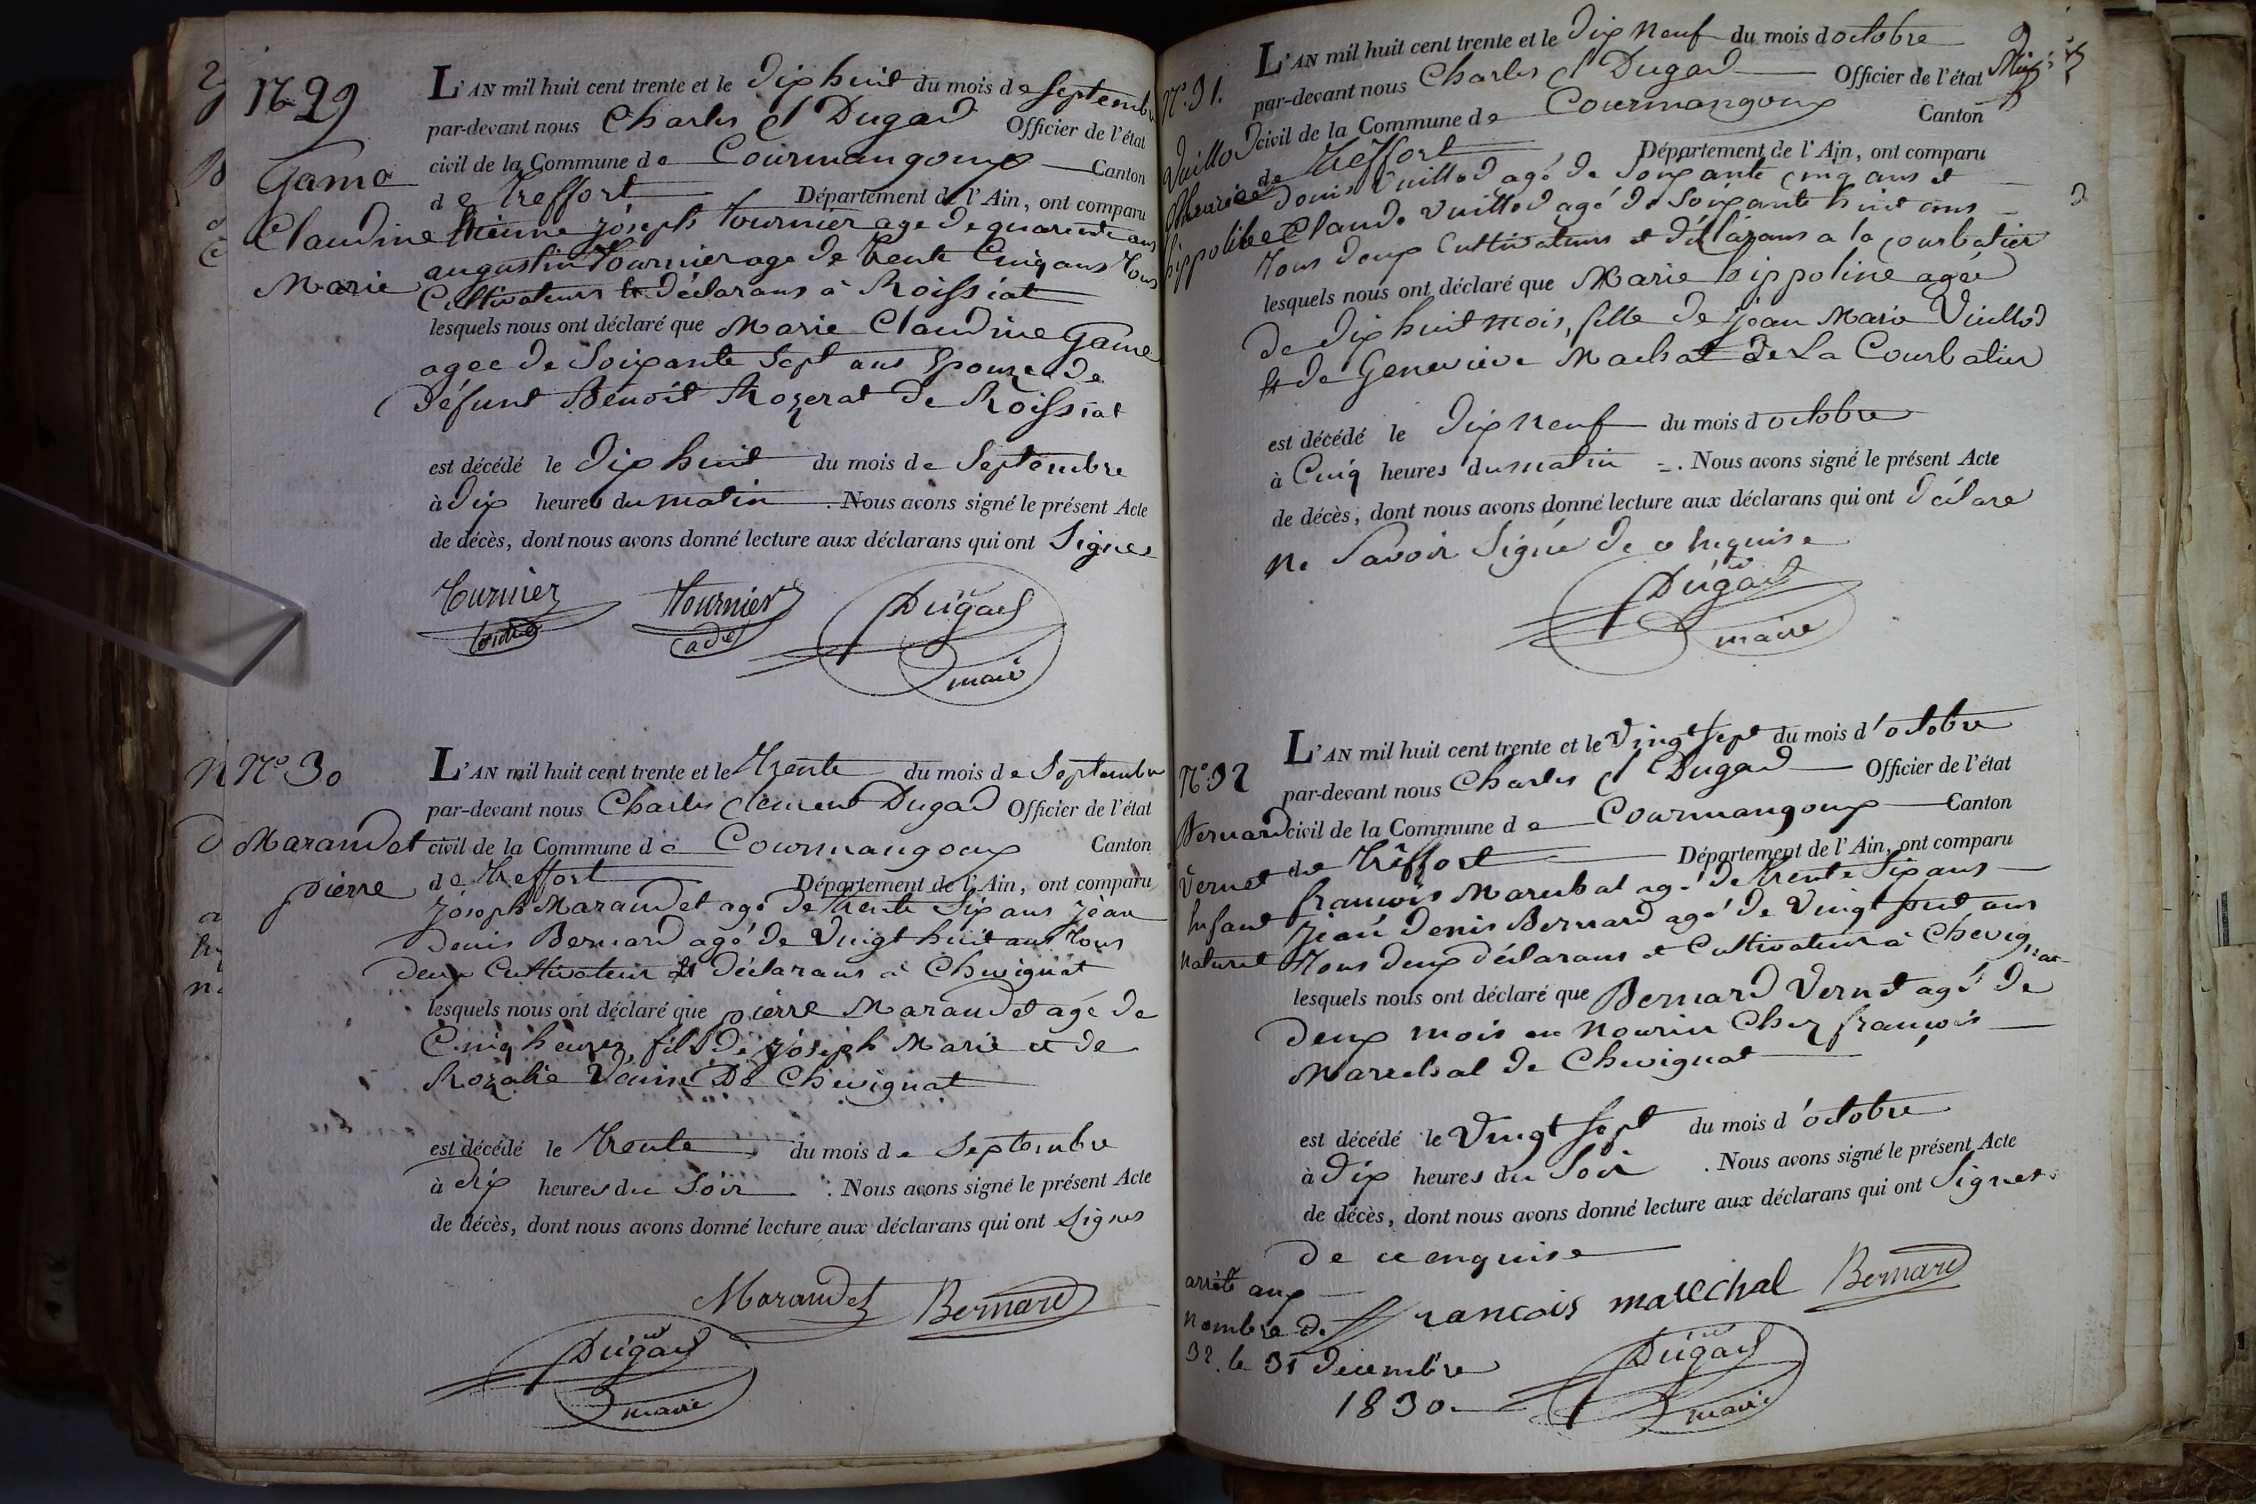 N.o 29
Game
Claudine
Marie
L'AN mil huit cent trente et le dix huit du mois de Septembre
par-devant nous Charles Ct Dugad Officier de l'état
civil de la Commune de Courmangoux Canton
de Treffort Département de l'Ain, ont comparu
Etienne joseph tournier age de quarente ans
augustin tournier age de trente Cinq ans tous
Cultivateurs et déclarans à Roissiat
lesquels nous ont déclaré que Marie Claudine Game
agee de Soixante Sept ans Epouze de
défunt Benoit Rozerat de Roissiat
est décédé le dix huit du mois de Septembre
à dix heures du matin . Nous avons signé le présent Acte
de décès, dont nous avons donné lecture aux déclarans qui ont Signes
tournier
tournier
cadet
Dugad
maire
N.o 30
Marandet
pierre
L'AN mil huit cent trente et le trente du mois de Septembre
par-devant nous Charles Clement Dugad Officier de l'état
civil de la Commune de Courmangoux Canton
de treffort Département de l'Ain, ont comparu
joseph Marandet agé de trente Six ans jean
denis Bernard agé de Vingt huit ans tous
deux Cultivateur et déclarans à Chevignat
lesquels nous ont déclaré que pierre Marandet agé de
Cinq heures, fils de joseph Marie et de
Rozalie De Chevignat
est décédé le trente du mois de Septembre
à dix heures du Soir . Nous avons signé le présent Acte
de décès, dont nous avons donné lecture aux déclarans qui ont Signes
Marandet Bernard
Dugad
maire
N.o 31.
Vuillod
Marie
hippolite
L'AN mil huit cent trente et le dix Neuf du mois doctobre
par-devant nous Charles Ct Dugad Officier de l'état
civil de la Commune de Courmangoux Canton
de treffort Département de l'Ain, ont comparu
Denis Vuillod agé de Soixante cinq ans et
Claude Vuillod agé de Soixante huit ans
tous deux Cultivateurs et déclarans a la Courbatier
lesquels nous ont déclaré que Marie hippoline agée
de dix huit mois, fille de jean Marie Vuillod
et de Genevieve Machat de La Courbatier
est décédé le dix Neuf du mois d octobre
à Cinq heures du matin . Nous avons signé le présent Acte
de décès, dont nous avons donné lecture aux déclarans qui ont déclare
Ne Savoir Signé de ce Enquise
Dugad
maire
N.o 32
Bernard
Vernet
Enfant
naturel
L'AN mil huit cent trente et le Vingt Sept du mois d'octobre
par-devant nous Charles Ct Dugad Officier de l'état
civil de la Commune de Courmangoux Canton
de Treffort Département de l'Ain, ont comparu
francois Marechal agé de trente Six ans
jean denis Bernard agé de Vingt huit ans
tous deux déclarans et Cultivateur à Chevignat
lesquels nous ont déclaré que Bernard Vernet agé de
deux mois en Nourice Chez françois
Marechal de Chevignat
est décédé le Vingt Sept du mois d'octobre
à dix heures du Soir . Nous avons signé le présent Acte
de décès, dont nous avons donné lecture aux déclarans qui ont Signes
de ce enquise
francois marechal Bernard
Dugad
maire
arrêté aux
Nombre de
32 le 31 decembre
1830